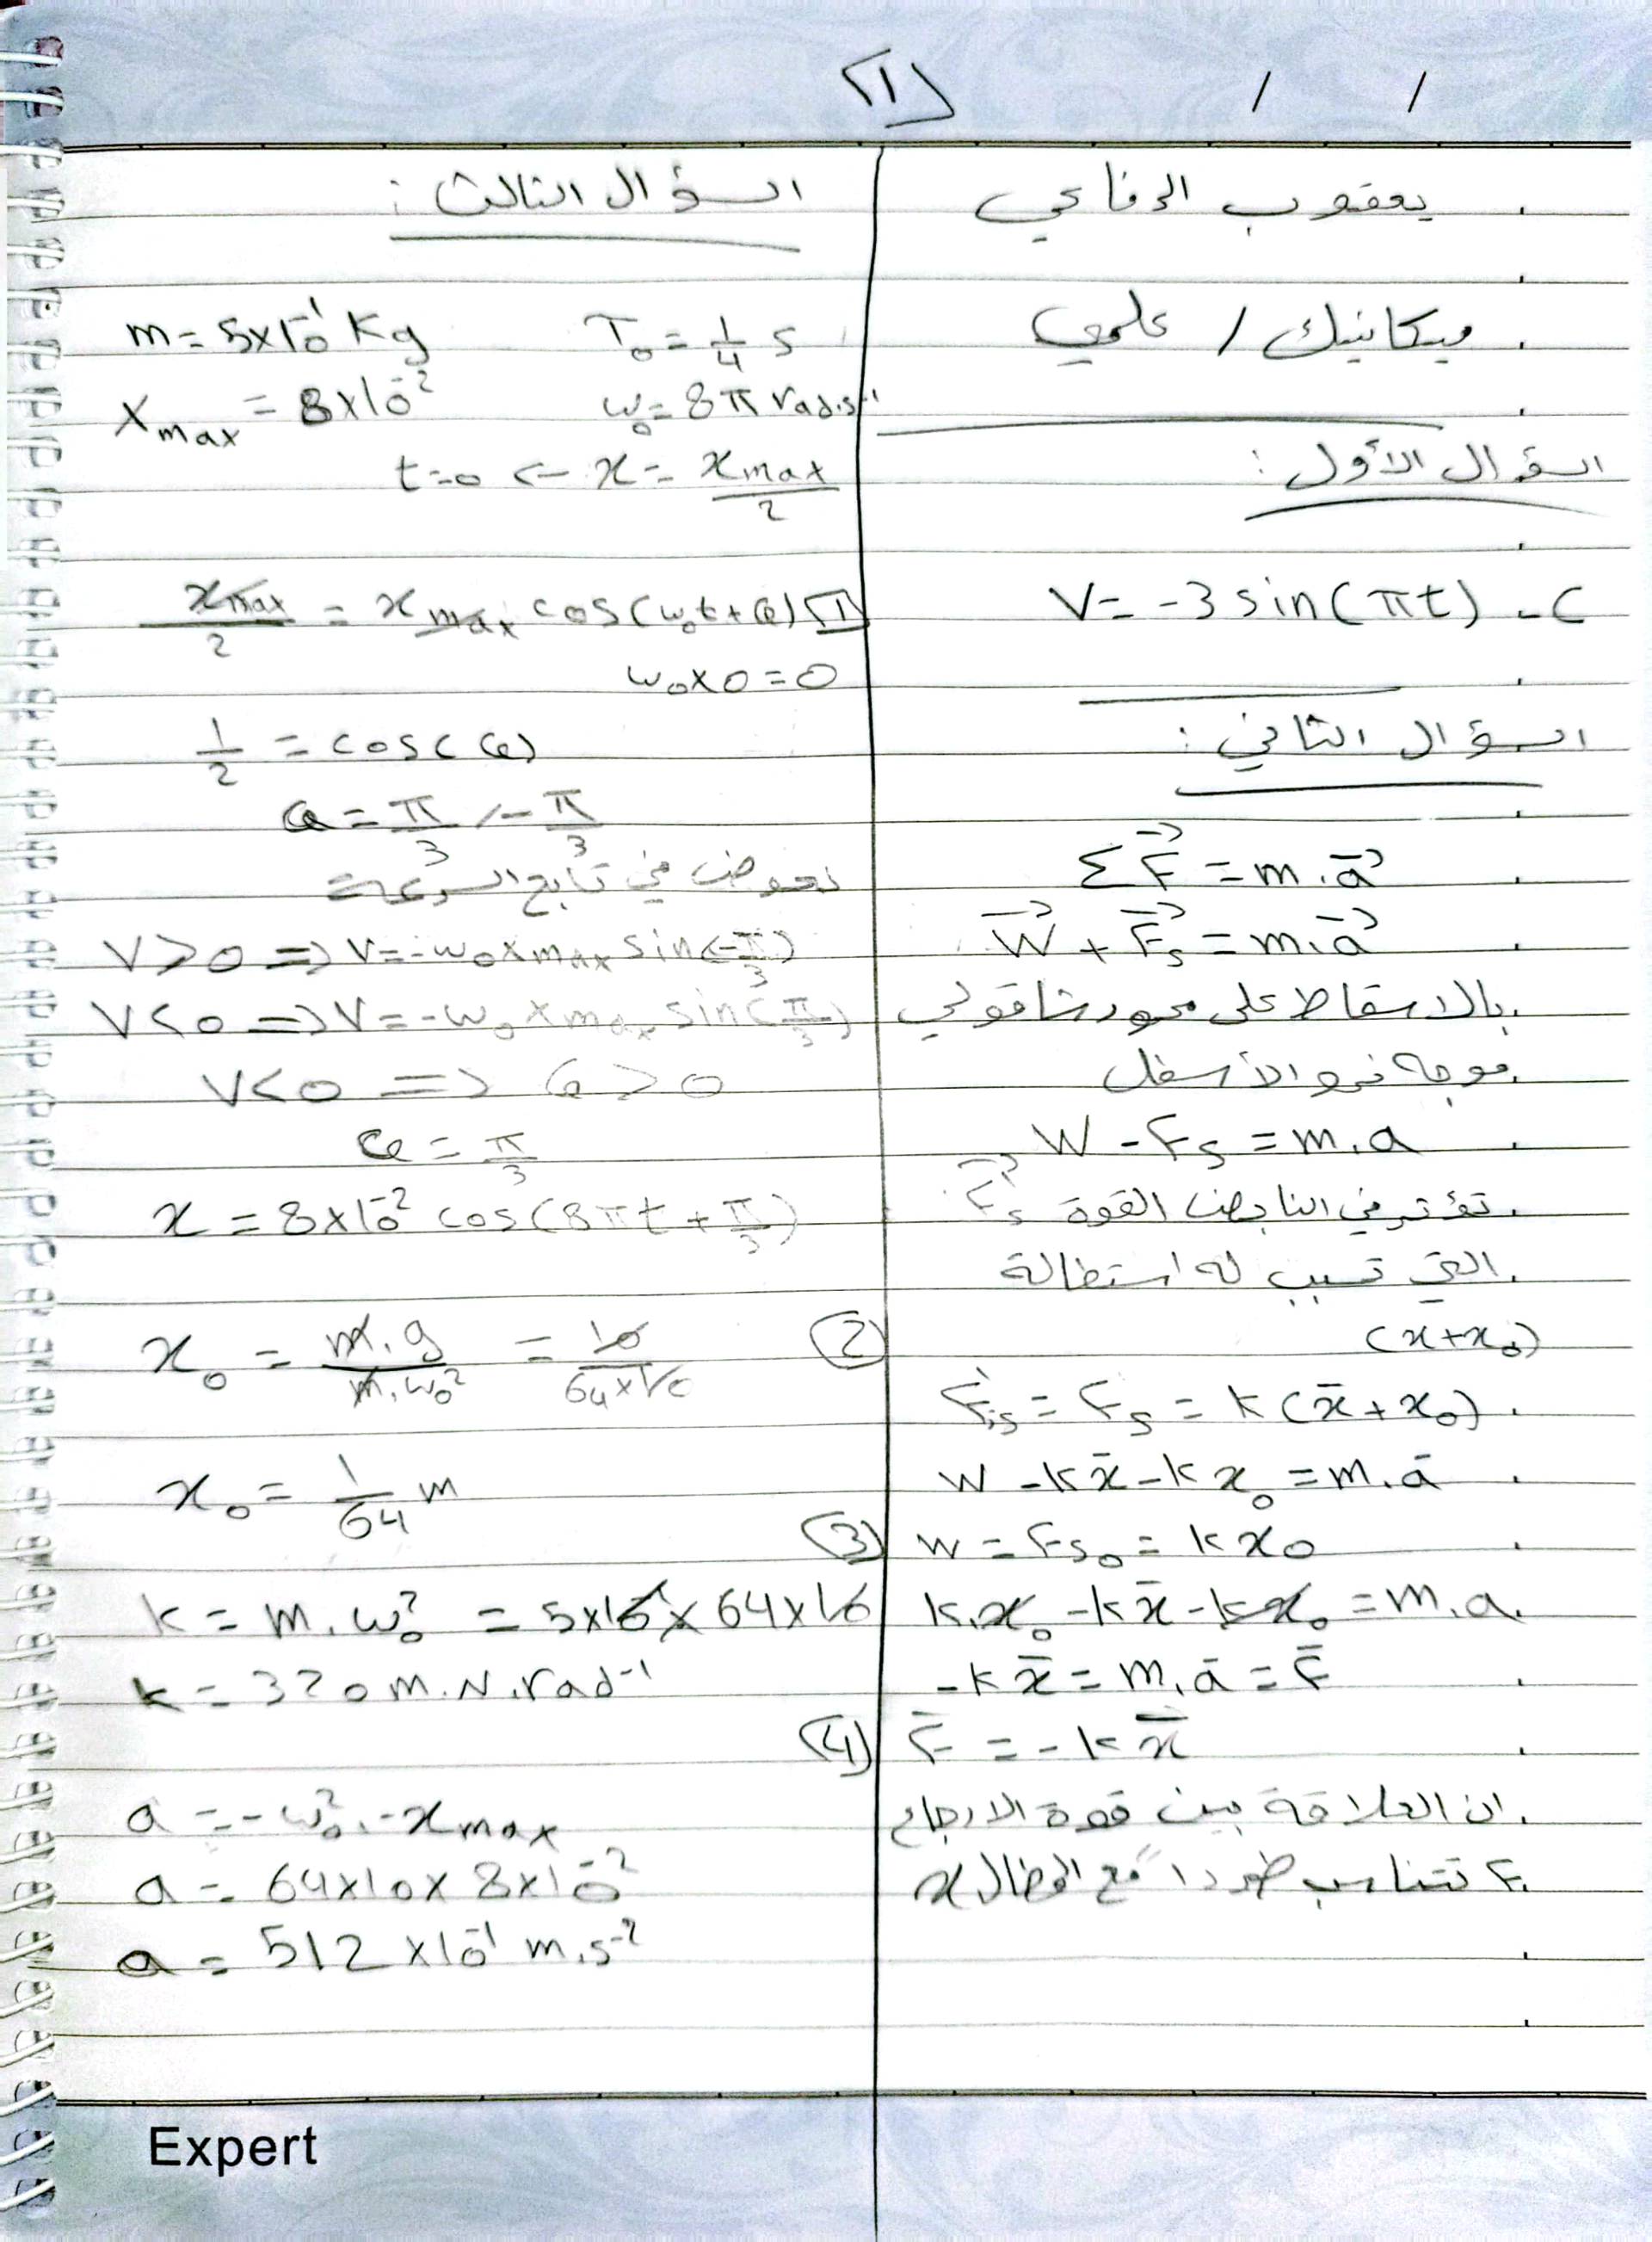 [1]
/ /
يعقوب الرفاعي
ميكانيك / علمي
السؤال الأول :
C - V = -3 sin(πt)
السؤال الثاني :
ΣF⃗ = m.a⃗
W⃗ + F⃗s = m.a⃗
بالاسقاط على محور شاقولي
موجه نحو الأسفل
W - Fs = m.a
تؤثر في النابض القوة F⃗'s
التي تسبب له استطالة
(x+x₀)
F's = Fs = k(x̄+x₀)
W - kx̄ - kx₀ = m.ā
W = Fs₀ = kx₀
k.x₀ - kx̄ - kx₀ = m.a
-kx̄ = m.ā = F̄
F̄ = -kx̄
ان العلاقة بين قوة الارجاع
F تتناسب طرداً مع المطال x
السؤال الثالث :
m = 5×10⁻¹ Kg T₀ = 1/4 s
Xmax = 8×10⁻² ω₀ = 8π rad.s⁻¹
t=0 ← x = xmax/2
[1] xmax/2 = xmax cos(ω₀t+φ)
ω₀×0=0
1/2 = cos(φ)
φ = π/3 / -π/3
نعوض في تابع السرعة
V>0 ⇒ V = -ω₀xmax sin(-π/3)
V<0 ⇒ V = -ω₀xmax sin(π/3)
V<0 ⇒ φ>0
φ = π/3
x = 8×10⁻² cos(8πt + π/3)
(2) x₀ = m.g/m.ω₀² = 10/64×10
x₀ = 1/64 m
(3)
k = m.ω₀² = 5×10⁻¹×64×10
k = 320 m.N.rad⁻¹
(4)
a = -ω₀².-xmax
a = 64×10×8×10⁻²
a = 512×10⁻¹ m.s⁻²
Expert